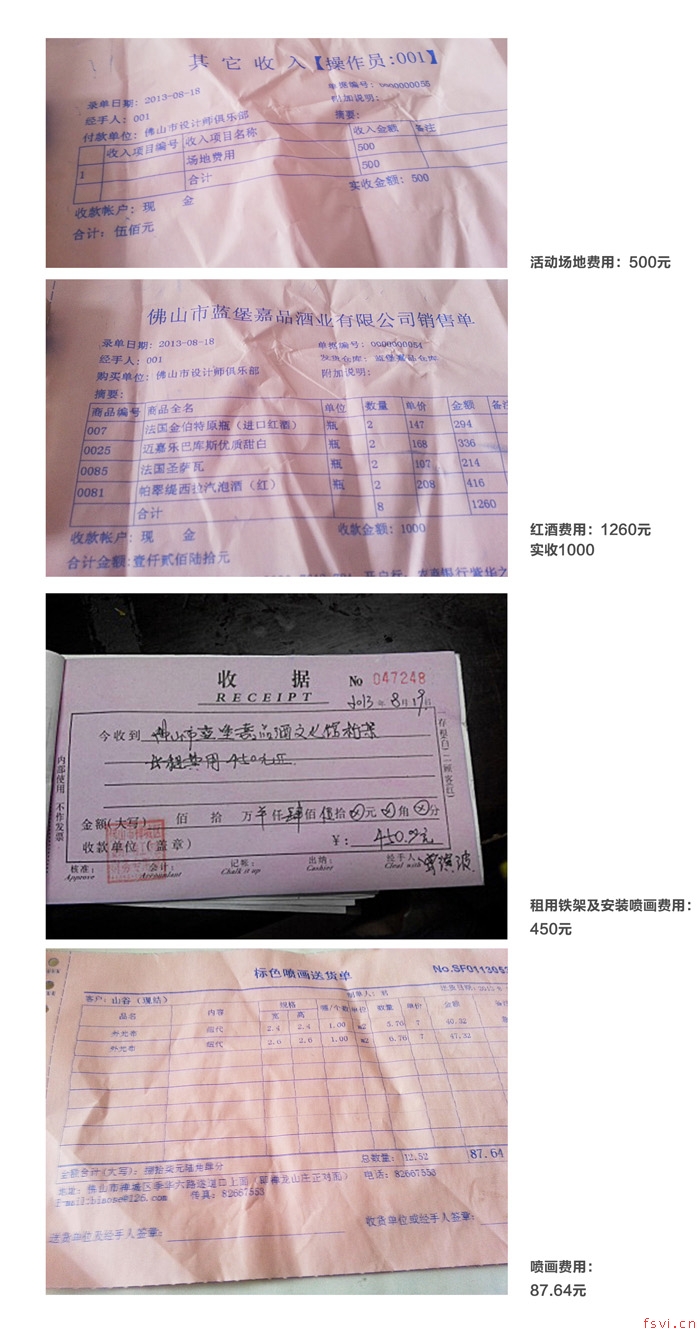 其它收入【操作员:001】
录单日期: 2013-08-18
单据编号: 0000000055
经手人: 001
附加说明:
付款单位: 佛山市设计师俱乐部
摘要:
收入项目编号 收入项目名称 收入金额 备注
1 场地费用 500
合计 500
收款帐户: 现 金
实收金额: 500
合计: 伍佰元
活动场地费用：500元
佛山市蓝堡嘉品酒业有限公司销售单
录单日期: 2013-08-18
单据编号: 0000000054
经手人: 001
发货仓库: 蓝堡嘉品仓库
购买单位: 佛山市设计师俱乐部
附加说明:
摘要:
商品编号 商品全名 单位 数量 单价 金额 备注
007 法国金伯特原瓶（进口红酒） 瓶 2 147 294
0025 迈嘉乐巴库斯优质甜白 瓶 2 168 336
0085 法国圣萨瓦 瓶 2 107 214
0081 帕翠缇西拉汽泡酒（红） 瓶 2 208 416
合计 8 1260
收款帐户: 现 金
收款金额: 1000
合计金额: 壹仟贰佰陆拾元
红酒费用：1260元
实收1000
收 据
No 047248
RECEIPT
2013年8月19日
今收到 佛山市蓝堡嘉品酒文化馆桁架
出租费用450元正.
内部使用 不作发票
存根(白) 二顾客(红)
金额(大写) 佰 拾 万 仟 肆佰 伍拾 元 角 分
收款单位(盖章)
￥: 450.00元
核准: 会计: 记帐: 出纳: 经手人
Approve Accountant Chalk it up Cashier
租用铁架及安装喷画费用：
450元
标色喷画送货单
No.SF011305
客户: 山谷 (现结)
品名 内容 规格 宽 高 单位 数量 单价 金额
外光布 2.4 2.4 1.00 m2 5.76 7 40.32
外光布 2.6 2.6 1.00 m2 6.76 7 47.32
金额合计(大写): 捌拾柒元陆角肆分
总数量: 12.52
87.64
电话: 82667553
传真: 82667553
送货单位或经手人签章:
收货单位或经手人签章:
喷画费用：
87.64元
fsvi.cn